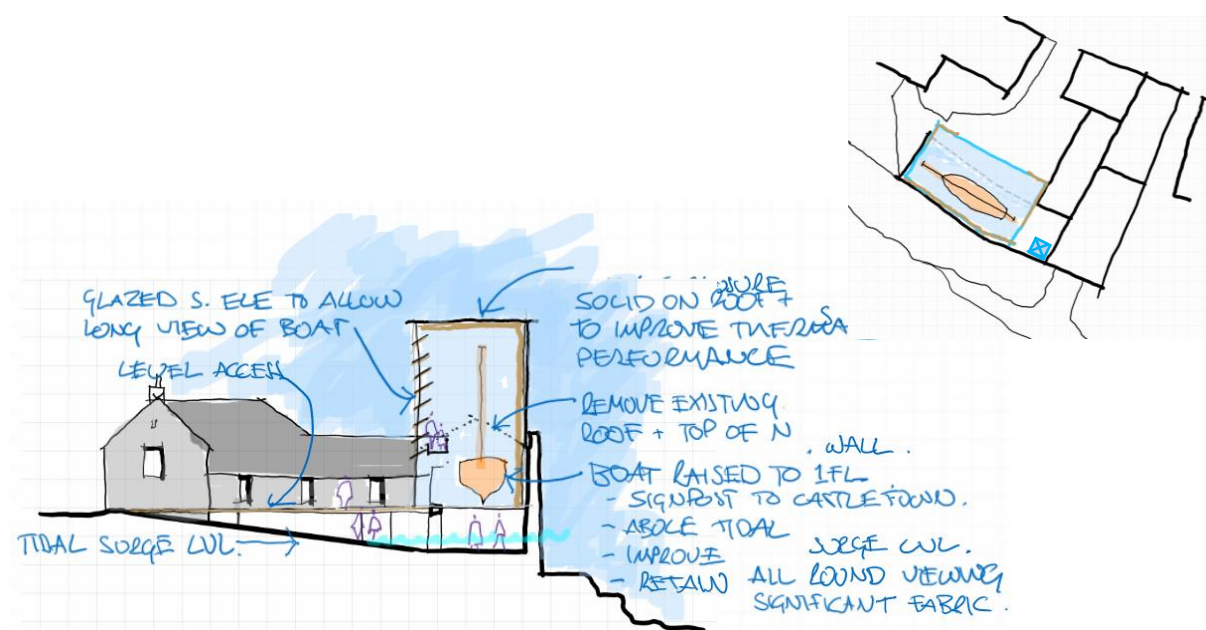 GLAZED S. ELE TO ALLOW
LONG VIEW OF BOAT
LEVEL ACCESS
TIDAL SURGE LVL.
SOLID ON ROOF +
TO IMPROVE THERMA
PERFORMANCE
REMOVE EXISTING
ROOF + TOP OF N
. WALL .
BOAT RAISED TO 1FL
- SIGNPOST TO CASTLETOWN.
- ABOVE TIDAL
SURGE LVL.
- IMPROVE
- RETAIN ALL ROUND VIEWING
SIGNIFICANT FABRIC .